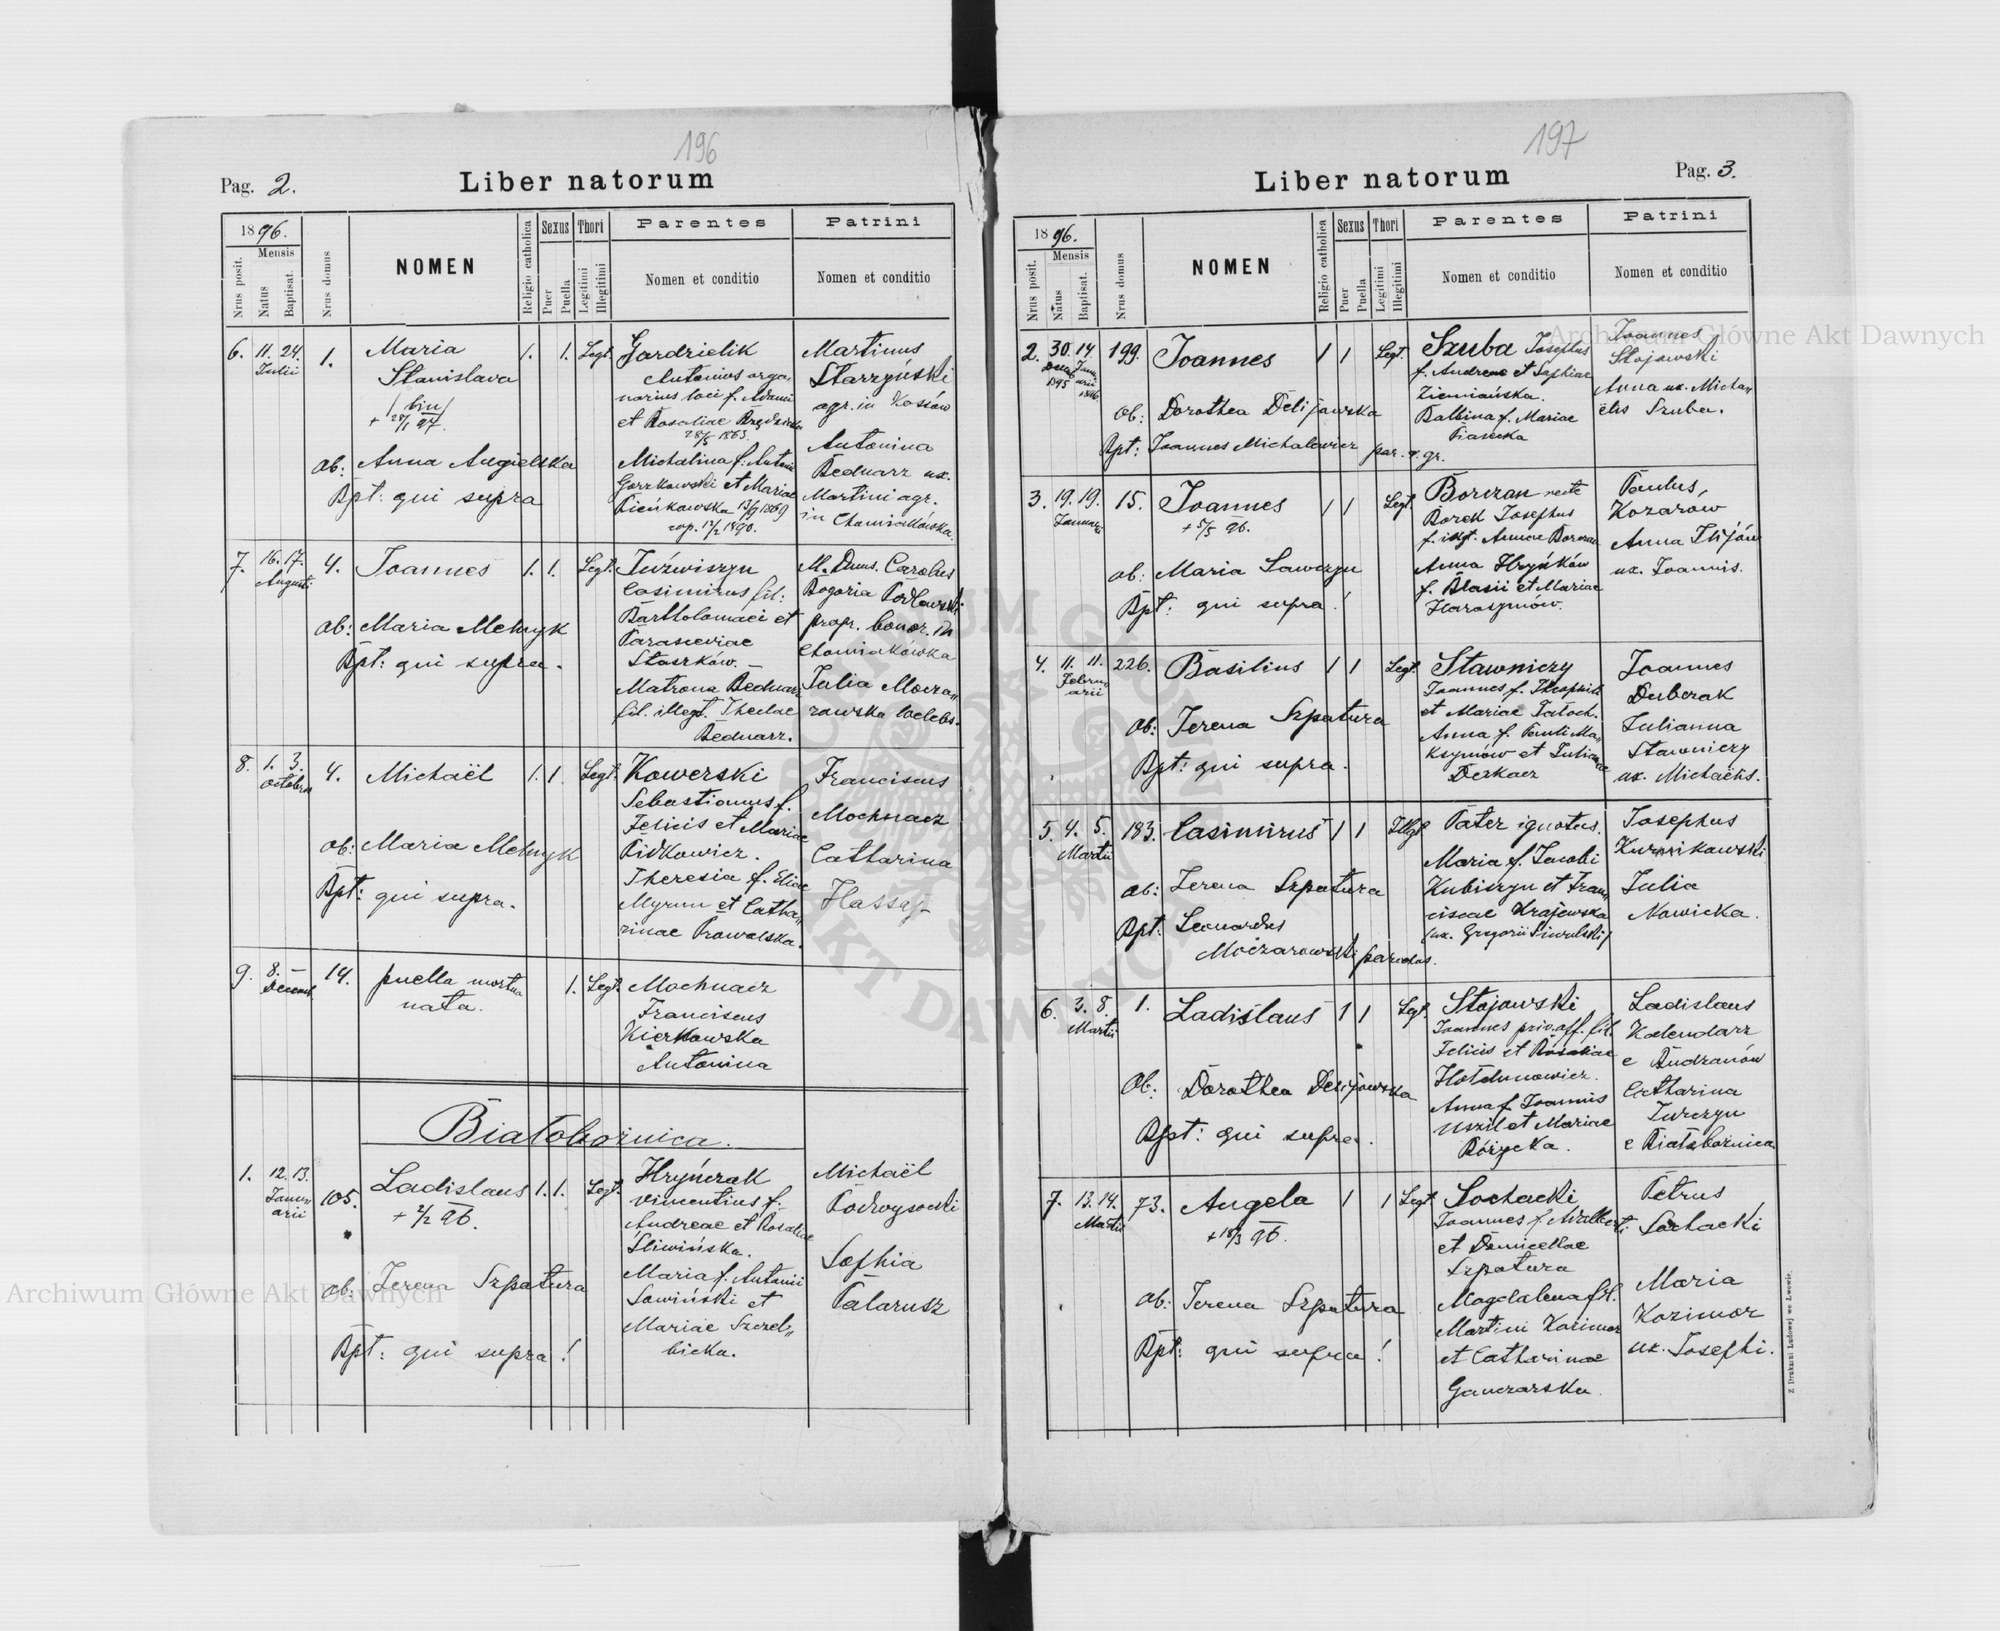 196
Pag. 2.
Liber natorum
1896.
Mensis
Nrus posit.
Natus
Baptisat.
Nrus domus
NOMEN
Religio catholica
Sexus
Puer
Puella
Thori
Legitimi
Illegitimi
Parentes
Nomen et conditio
Patrini
Nomen et conditio
6. 11. 24. 1.
Julii
Maria
Stanislava
/bin/
+ 28/1 97.
ob: Anna Angielska
Bpt: qui supra
1. 1. Legt.
Gardzielik
Antonius orga-
narius loci f. Adami
et Rosaliae
28/5 1863.
Michalina f. Antonii
Gorzkowski et Mariae
Pieńkowska 13/9 1869
cop. 12/2 1890.
Martinus
Starzyński
agr. in Kosów
Antonina
Bednarz ux.
Martini agr.
in Chomiakówka.
7. 16. 17. 4.
Augusti
Joannes
ob: Maria Melnyk
Bpt: qui supra.
1. 1. Legt.
Juźwiszyn
Casimirus fil:
Bartholomaei et
Parasceviae
Staszków. —
Matrona Bednarz
fil. illegt. Theclae
Bednarz.
M. Dnus. Carolus
Bogoria Podlewski
propr. bonor. in
Chomiakówka
Julia Moczo„
rowska coelebs.
8. 1. 3. 4.
Octobris
Michaël
ob: Maria Melnyk
Bpt: qui supra.
1. 1. Legt.
Kowerski
Sebastianus f.
Felicis et Mariae
Pidkowicz.
Theresia f. Eliae
Myrun et Catha„
rinae Prowalska.
Franciscus
Mochnacz
Catharina
Hassaj
9. 8. — 14.
Decemb.
puella mortua
nata.
1. Legt.
Mochnacz
Franciscus
Kierkowska
Antonina
Białobożnica.
1. 12. 13. 105.
Janu„
arii
Ladislaus
+ 2/2 96.
ob: Irena Szpatura
Bpt: qui supra!
1. 1. Legt.
Hryńczak
Vincentius f.
Andreae et Rosaliae
Śliwińska.
Maria f. Antonii
Sawiński et
Mariae Szczel„
bicka.
Michaël
Podwysocki
Sophia
Patarusz
197
Liber natorum
Pag. 3.
1896.
Mensis
Nrus posit.
Natus
Baptisat.
Nrus domus
NOMEN
Religio catholica
Sexus
Puer
Puella
Thori
Legitimi
Illegitimi
Parentes
Nomen et conditio
Patrini
Nomen et conditio
2. 30. 14. 199.
Decemb. Janu
1895 arii
1896
Joannes
ob: Dorothea Delijowska
Bpt: Joannes Michalewicz par. r. gr.
1 1 Legt.
Szuba Josephus
f. Andreae et Sophiae
Ziemiańska.
Balbina f. Mariae
Piasecka
Joannes
Stojowski
Anna ux. Micha„
ëlis Szuba.
3. 19. 19. 15.
Januarii
Joannes
+ 5/5 96.
ob: Maria Sawczyn
Bpt: qui supra!
1 1 Legt.
Borczan recte
Borek Josephus
f. illegt. Annae Borczan
Anna Hryńków
f. Blasii et Mariae
Harasymów.
Paulus
Kozarów
Anna Ilijów
ux. Joannis.
4. 11. 11. 226.
Febru
arii
Basilius
ob: Irena Szpatura
Bpt: qui supra.
1 1 Legt.
Stawniczy
Joannes f. Theophili
et Mariae Tatoch.
Anna f. Pauli Ma„
ksymów et Julianae
Derkacz
Joannes
Dubczak
Julianna
Stawniczy
ux. Michaëlis.
5. 4. 5. 183.
Martii
Casimirus
ob: Irena Szpatura
Bpt. Leonardus
Moczarowski parochus.
1 1 Illgt.
Pater ignotus.
Maria f. Jacobi
Kubiszyn et Fran„
ciscae Krajewska
(ux. Gregorii Siwulski)
Josephus
Kurnikowski
Julia
Nowicka.
6. 3. 8. 1.
Martii
Ladislaus
ob: Dorothea Delijowska
Bpt: qui supra.
1 1 Legt.
Stojowski
Joannes priv. off. fil.
Felicis et Rosaliae
Hołdunowicz.
Anna f. Joannis
et Mariae
Różycka.
Ladislaus
Kalendarz
e Budzanów
Catharina
Jurczyn
e Białobożnica
7. 13. 14. 73.
Martii
Angela
+ 18/3 96.
ob: Irena Szpatura
Bpt: qui supra!
1 1 Legt.
Sochacki
Joannes f. Adalberti
et Domicellae
Szpatura
Magdalena fil.
Martini Kozimor
et Catharinae
Ganczarska.
Petrus
Sochacki
Maria
Kozimor
ux. Josephi.
Z Drukarni Ludowej we Lwowie.
Archiwum Główne Akt Dawnych
Archiwum Główne Akt Dawnych
ARCHIWUM GŁÓWNE AKT DAWNYCH